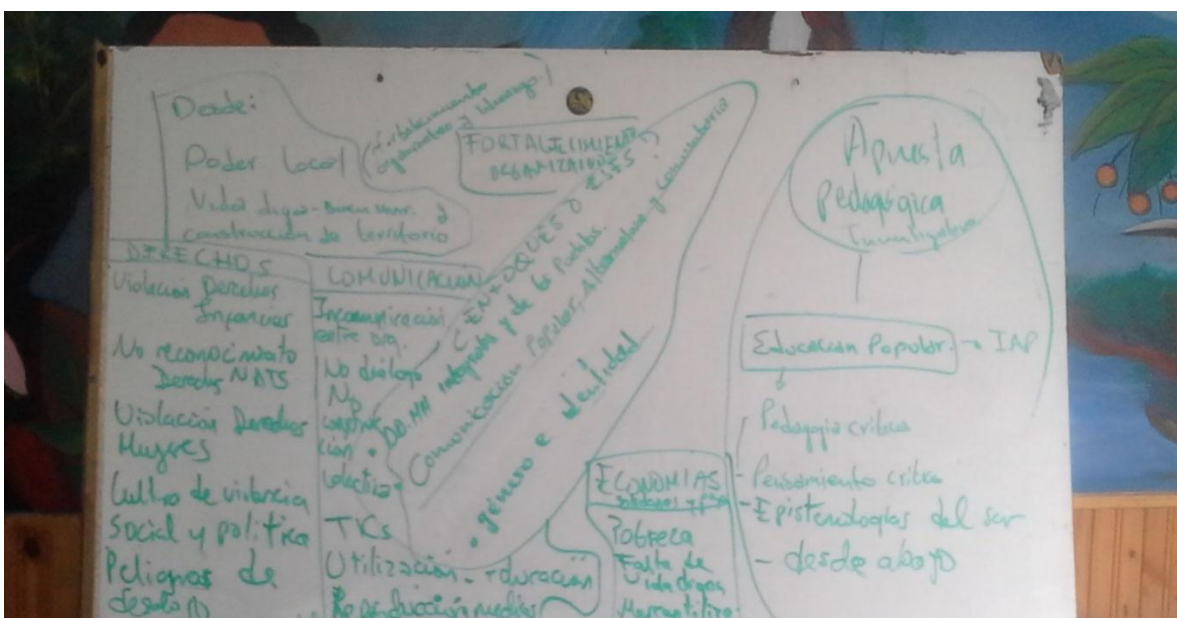 Desde:
Poder Local
Vida digna - Buen vivir y
construcción de territorio
Fortalecimiento
organizativo y liderazgo.
FORTALECIMIENTO
ORGANIZATIVO
DERECHOS
Violación Derechos
Infancias
No reconocimiento
Derechos NATS
Violación Derechos
Mujeres
Cultura de violencia
Social y política
Peligros de
desalojo
COMUNICACIÓN
Incomunicación
entre org.
No diálogo
No
construc-
ción
colectiva
TICs
Utilización - + duración
Reproducción medios
ENFOQUES O EJES
• DD.HH integrales y de los Pueblos.
Comunicación Popular, Alternativa y Comunitaria
• género e identidad
ECONOMIAS
Pobreza
Falta de
vida digna
Apuesta
pedagógica
Investigativa
Educación Popular. → IAP
Pedagogía crítica
- Pensamiento crítico
- Epistemologías del sur
- desde abajo